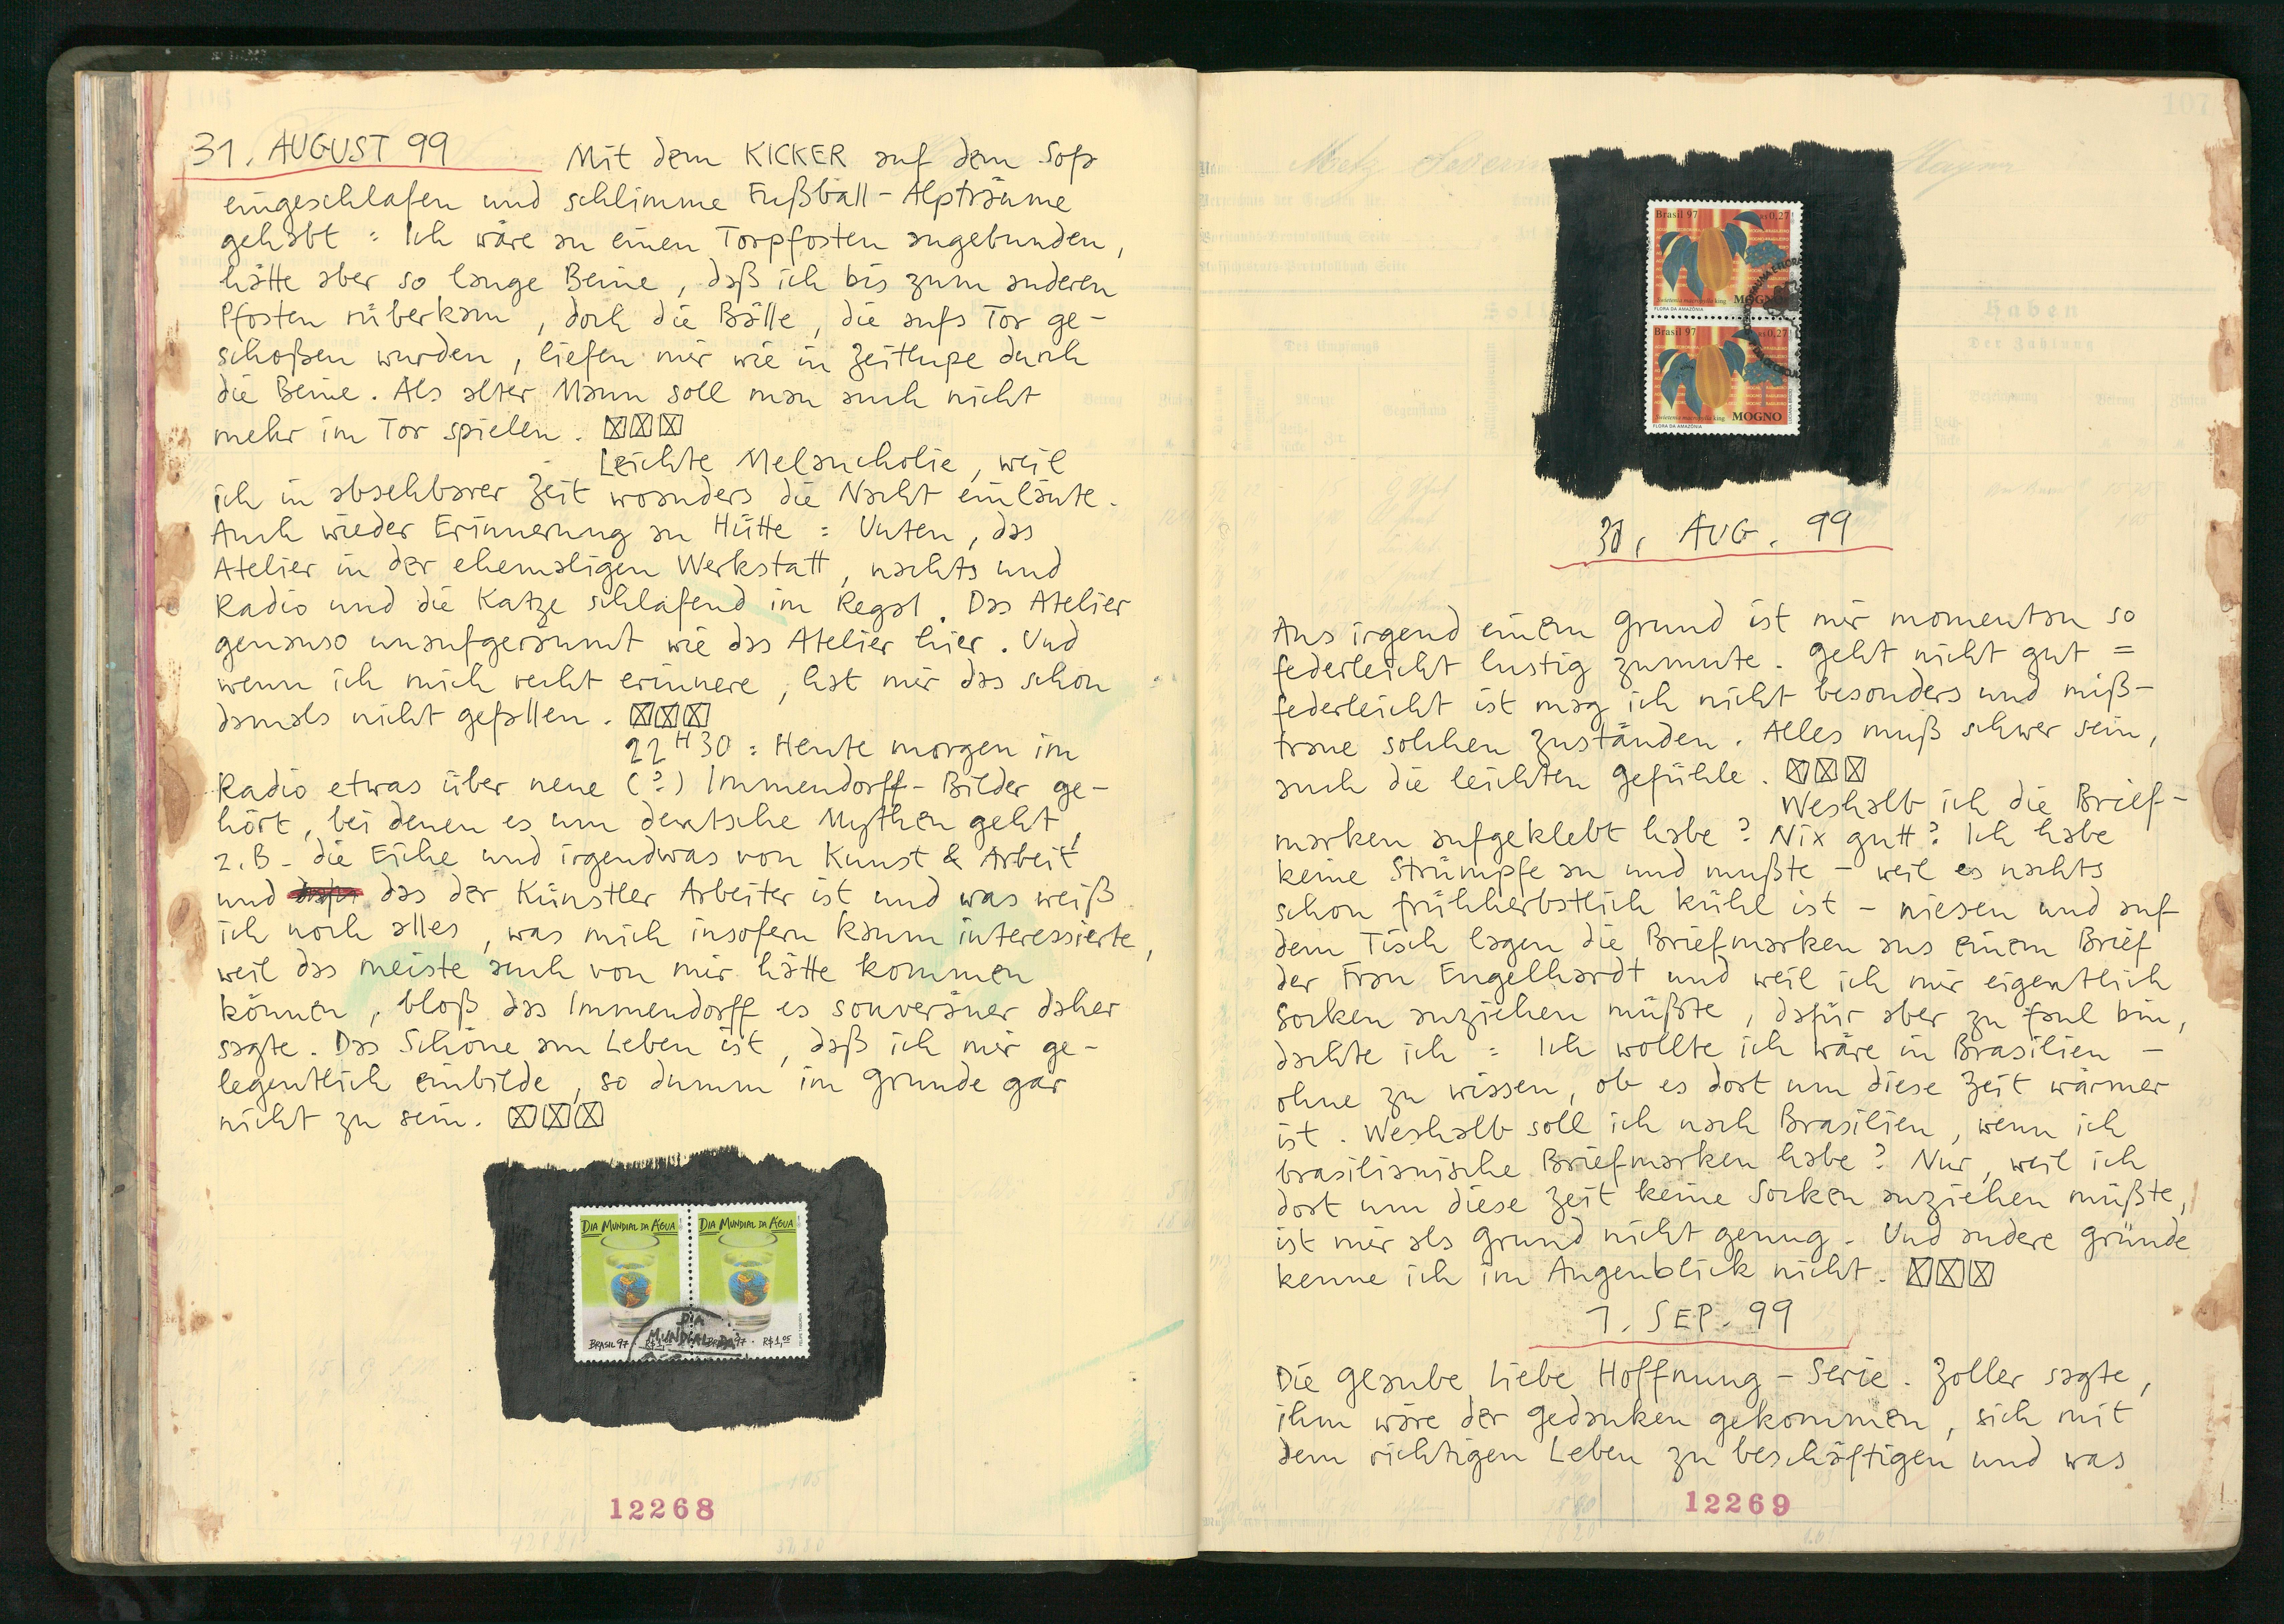 31. AUGUST 99 Mit dem KICKER auf dem Sofa
eingeschlafen und schlimme Fußball-Alpträume
gehabt: Ich wäre an einen Torpfosten angebunden,
hätte aber so lange Beine, daß ich bis zum anderen
Pfosten rüberkam, doch die Bälle, die aufs Tor ge-
schoßen wurden, liefen mir wie in Zeitlupe durch
die Beine. Als alter Mann soll man auch nicht
mehr im Tor spielen. ☒☒☒
Leichte Melancholie, weil
ich in absehbarer Zeit woanders die Nacht einläute.
Auch wieder Erinnerung an Hütte: Unten, das
Atelier in der ehemaligen Werkstatt, nachts und
Radio und die Katze schlafend im Regal. Das Atelier
genauso unaufgeräumt wie das Atelier hier. Und
wenn ich mich recht erinnere, hat mir das schon
damals nicht gefallen. ☒☒☒
22H30: Heute morgen im
Radio etwas über neue (?) Immendorff-Bilder ge-
hört, bei denen es um deutsche Mythen geht,
z.B. die Eiche und irgendwas von Kunst & Arbeit
und das der Künstler Arbeiter ist und was weiß
ich noch alles, was mich insofern kaum interessierte,
weil das meiste auch von mir hätte kommen
können, bloß das Immendorff es souveräner daher
sagte. Das Schöne am Leben ist, daß ich mir ge-
legentlich einbilde, so dumm im Grunde gar
nicht zu sein. ☒☒☒
DIA MUNDIAL DA ÁGUA DIA MUNDIAL DA ÁGUA
BRASIL 97 R$1,05 BRASIL 97 R$1,05
DIA
MUNDIAL DA
12268
107
Brasil 97 R$0,27
Swietenia macrophylla king MOGNO
FLORA DA AMAZÔNIA
Brasil 97 R$0,27
Swietenia macrophylla king MOGNO
FLORA DA AMAZÔNIA
Soll
Haben
Der Zahlung
31. AUG. 99
Aus irgend einem Grund ist mir momentan so
federleicht lustig zumute. Geht nicht gut =
federleicht ist mag ich nicht besonders und miß-
traue solchen Zuständen. Alles muß schwer sein,
auch die leichten Gefühle. ☒☒☒
Weshalb ich die Brief-
marken aufgeklebt habe? Nix gutt? Ich habe
keine Strümpfe an und mußte – weil es nachts
schon frühherbstlich kühl ist – niesen und auf
dem Tisch lagen die Briefmarken aus einem Brief
der Frau Engelhardt und weil ich mir eigentlich
Socken anziehen müßte, dafür aber zu faul bin,
dachte ich: Ich wollte ich wäre in Brasilien –
ohne zu wissen, ob es dort um diese Zeit wärmer
ist. Weshalb soll ich nach Brasilien, wenn ich
brasilianische Briefmarken habe? Nur, weil ich
dort um diese Zeit keine Socken anziehen müßte,
ist mir als Grund nicht genug. Und andere Gründe
kenne ich im Augenblick nicht. ☒☒☒
1. SEP. 99
Die Glaube Liebe Hoffnung-Serie. Zoller sagte,
ihm wäre der Gedanken gekommen, sich mit
dem richtigen Leben zu beschäftigen und was
12269